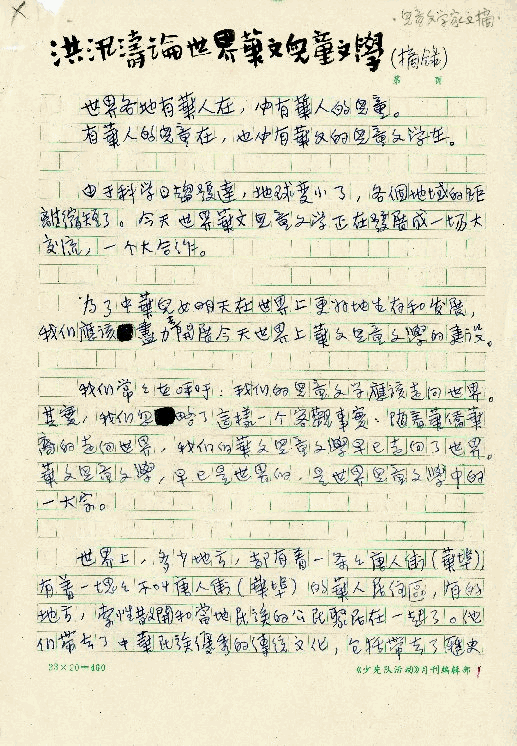 儿童文学家文摘
洪汛濤論世界華文兒童文學(摘錄)
第 頁
世界各地有華人在，中有華人的兒童。
有華人的兒童在，也中有華文的兒童文学在。
由于科学日趨發達，地球变小了，各個地域的距
離縮短了。今天世界華文兒童文学正在發展成一场大
交流，一个大合作。
为了中華兒女明天在世界上更好地生存和发展，
我们應該盡力開展今天世界上華文兒童文學的建设。
我们常々在呼吁：我们的兒童文学應該走向世界。
其實，我们忽略了這樣一个客觀事實：随着華僑華
裔的走向世界，我们的華文兒童文學早已走向了世界。
華文兒童文學，早已是世界的，是世界兒童文學中的
一大家。
世界上，多少地方，都有着一条々唐人街(華埠)，
有着一塊々不叫唐人街(華埠)的華人居住區，有的
地方，索性散開和當地民族的公民聚居在一起了。他
们带去了中華民族優秀的傳統文化，包括带去了歷史
23×20=460
《少先队活动》月刊編輯部